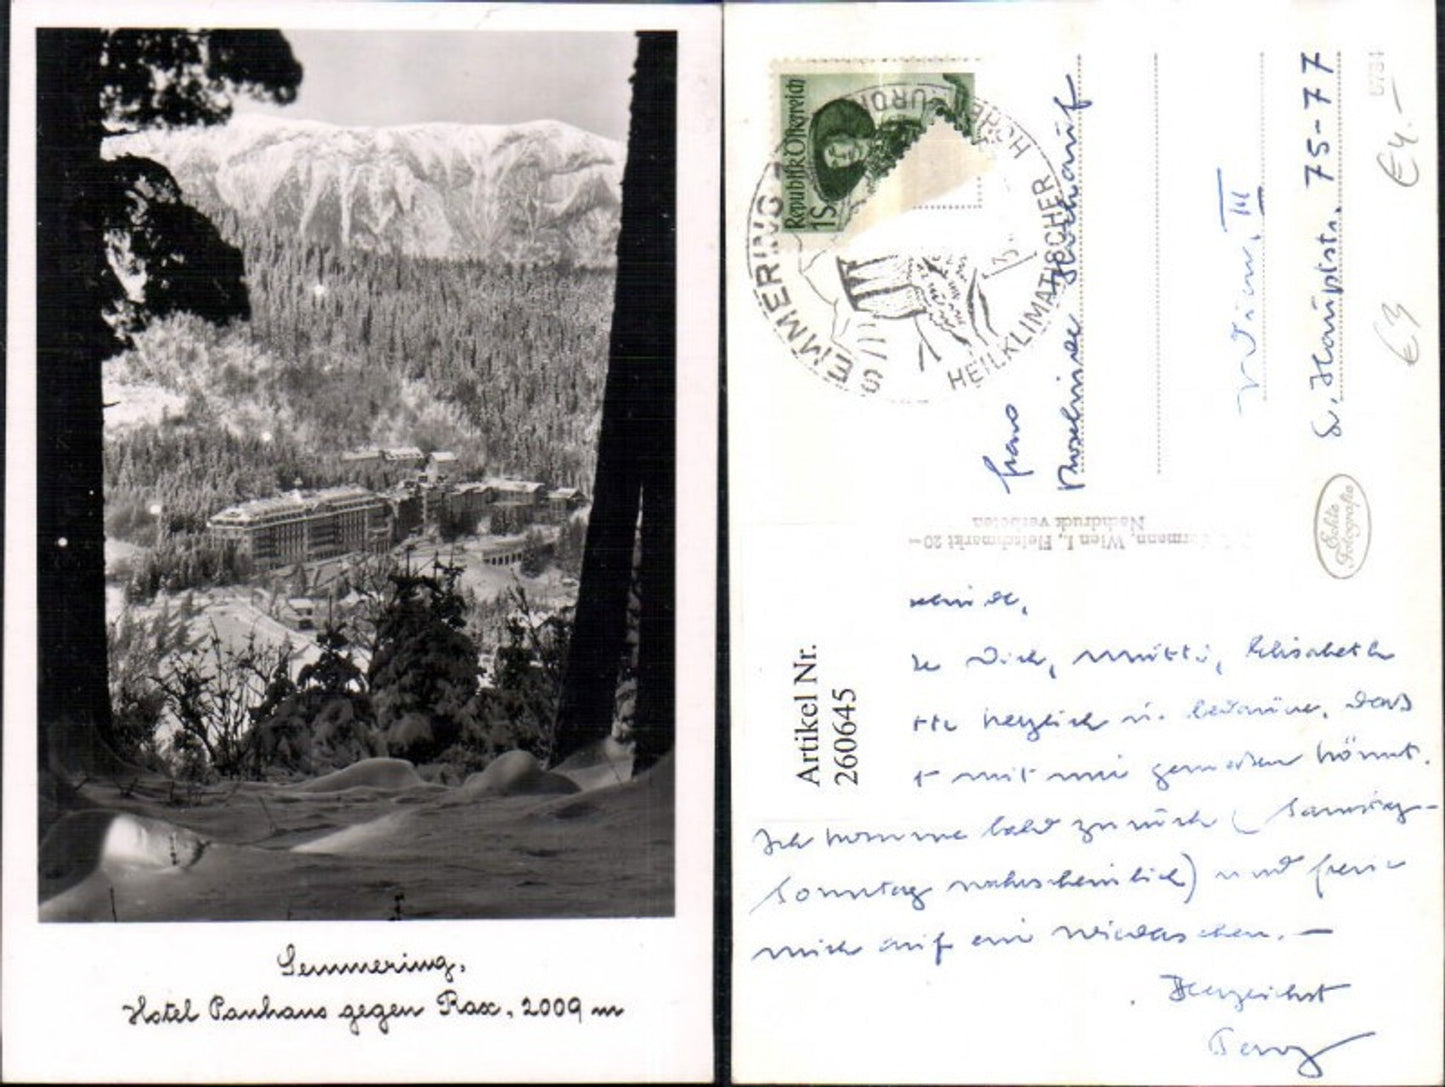 Semmering,
Hotel Panhans gegen Rax, 2009 m
Republik Österreich
1S
SEMMERING
HEILKLIMATISCHER
HÖHENKURORT
Frau
Wien III
Hauptstr. 75-77
€4.-
€3
Echte
Fotografie
Wien I., Fleischmarkt 20
Nachdruck verboten
Artikel Nr.
260645
Dich, Mutti, Elisabeth
herzlich u. bedaure, dass
mit mir könnt.
Ich komme bald zurück (Samstag-
Sonntag wahrscheinlich) und freue
mich auf ein Wiedersehen. —
Herzlichst